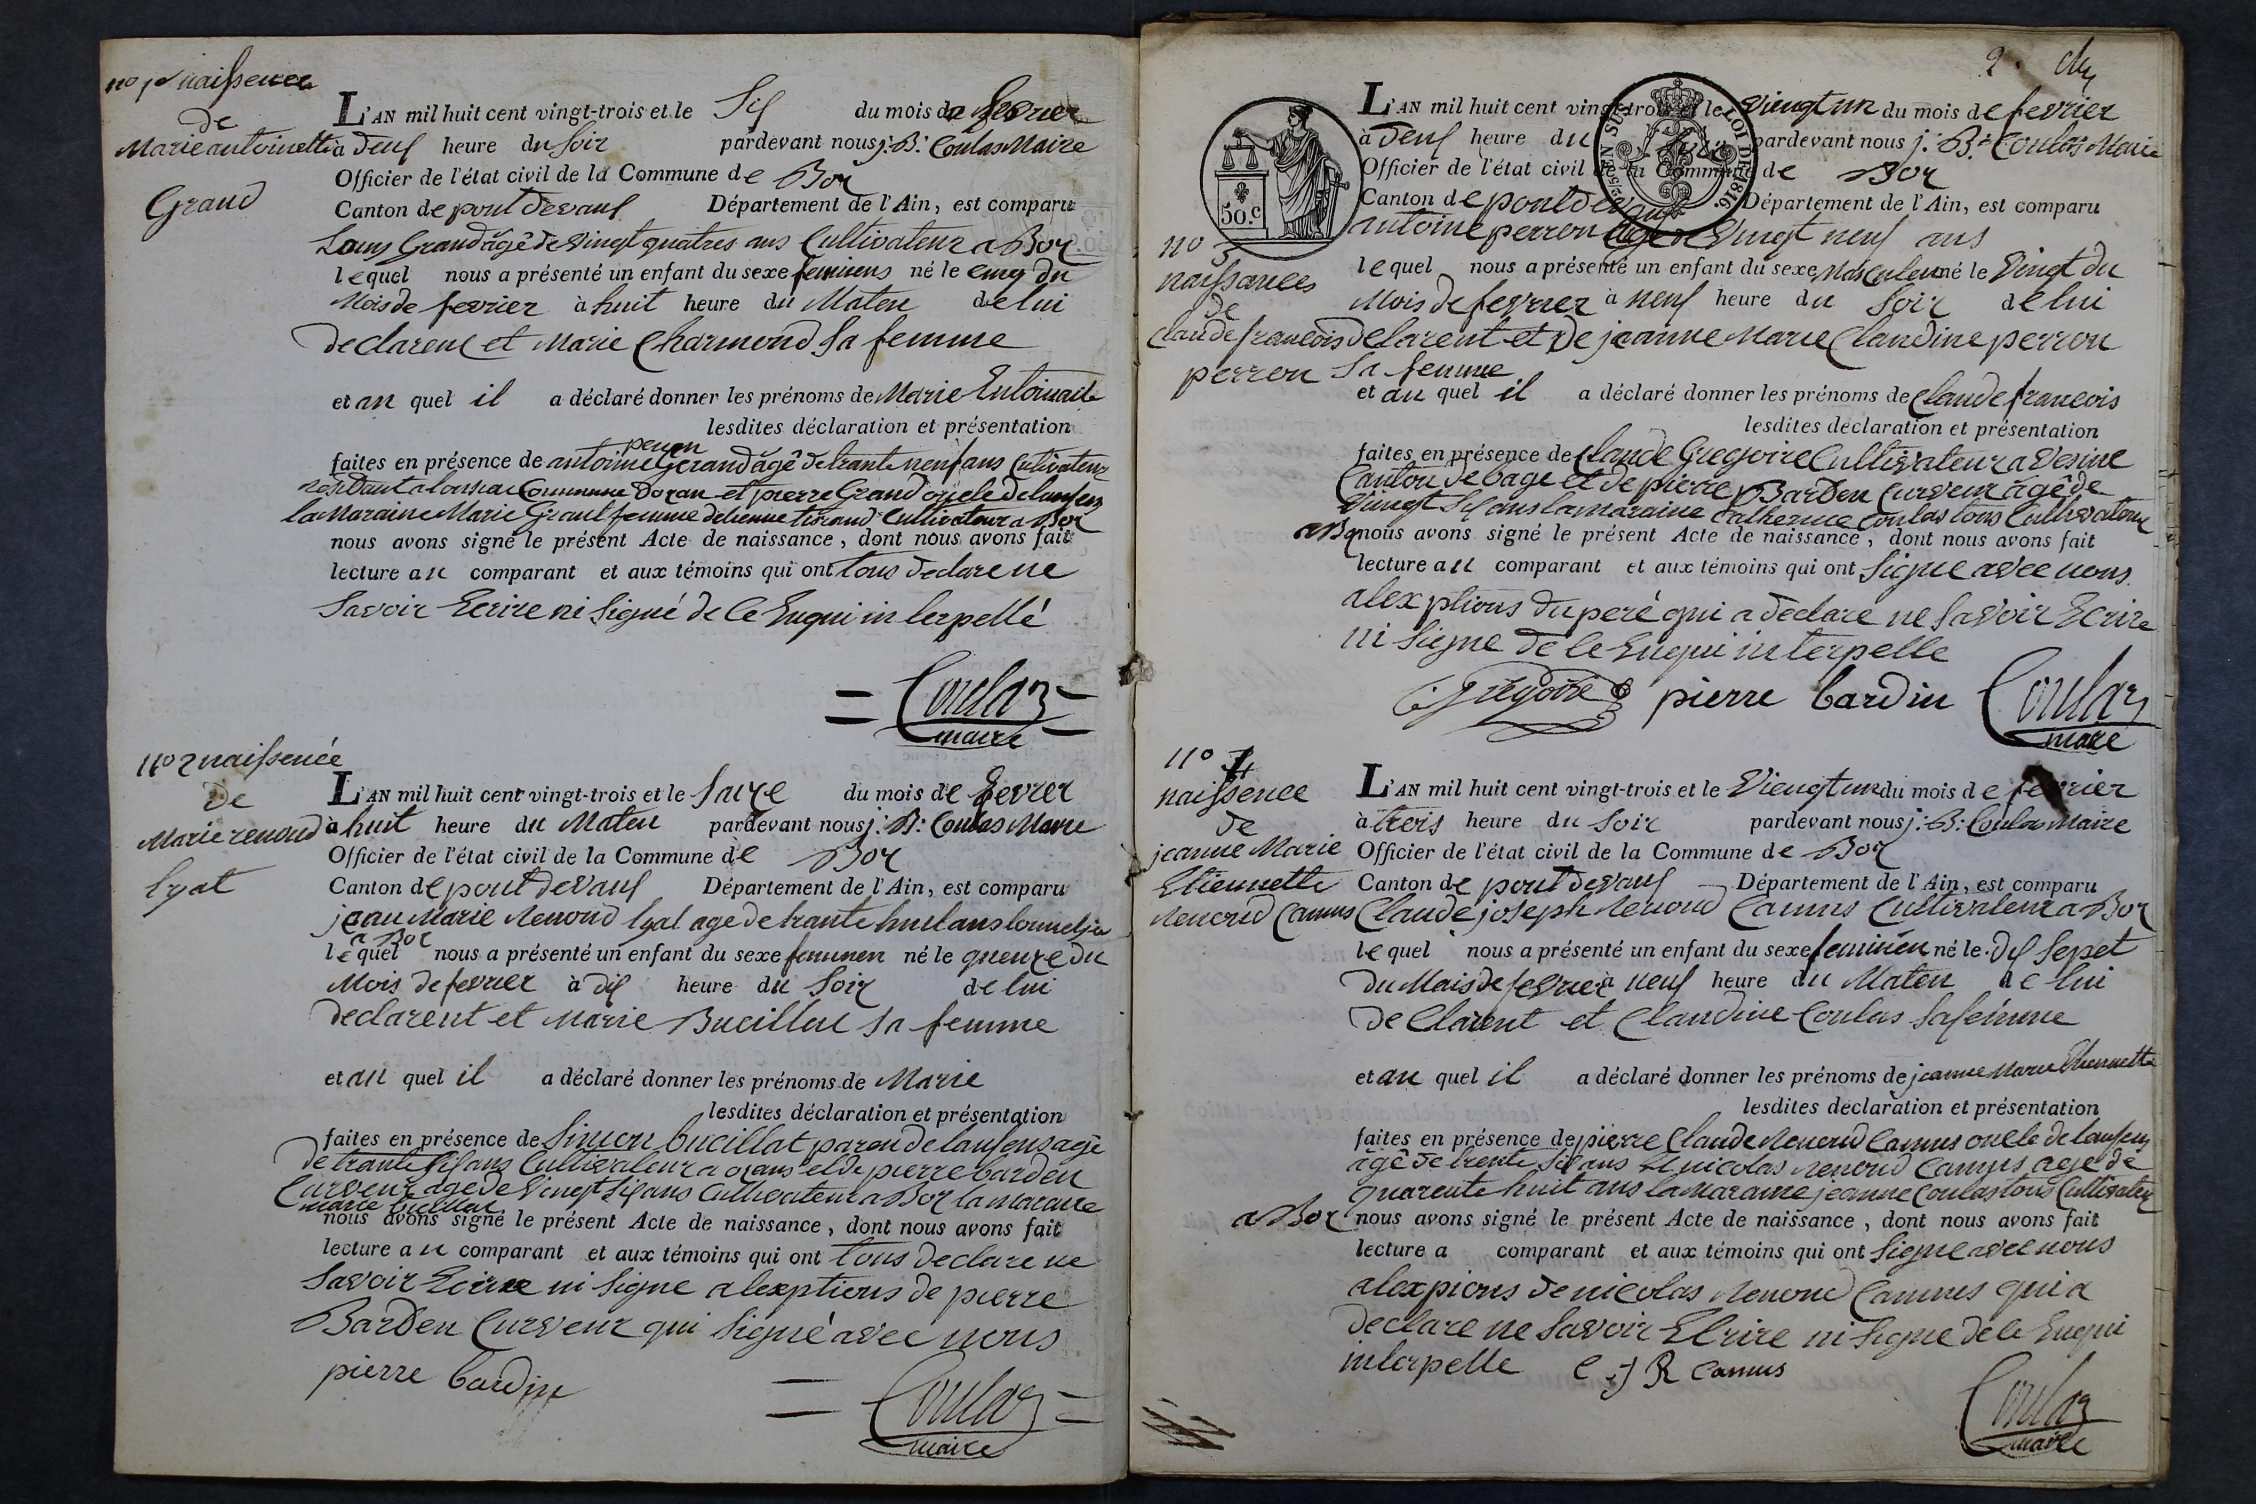 no 1er naissence
de
Marie antoinette
Grand
L'AN mil huit cent vingt-trois et le Six du mois de fevrier
à deux heure du Soir pardevant nous j: B: Coulas Maire
Officier de l'état civil de la Commune de Boz
Canton de pont devaux Département de l'Ain, est comparu
Louis Grand âgê de vingt quatres ans Cultivateur a Boz
lequel nous a présenté un enfant du sexe feminens né le cinq du
Mois de fevrier à huit heure du Maten de lui
declarent et Marie Charmond Sa femme
et au quel il a déclaré donner les prénoms de Marie Entoinaite
lesdites déclaration et présentation
faites en présence de antoine Grand âgê de trante neuf ans Cultivateur
residant a Commune Dozan et pierre Grand oncle de lanfens
la Maraine Marie Grant femme detienne Cultivateur a Boz
nous avons signé le présent Acte de naissance, dont nous avons fait
lecture au comparant et aux témoins qui ont tous declare ne
Savoir Ecrire ni Signé de Ce Enqui in terpellé
Coulas
maire
no 2 naissencée
de
Marie renoud
lyat
L'AN mil huit cent vingt-trois et le Saize du mois de fevrer
à huit heure du Maten pardevant nous j: B: Coulas Maire
Officier de l'état civil de la Commune de Boz
Canton de pont devaux Département de l'Ain, est comparu
jean Marie Renoud lyat age de trante huit ans
a Boz
lequel nous a présenté un enfant du sexe femenen né le quenze du
Mois de fevrier à dix heure du Soir de lui
declarent et Marie Bucillat Sa femme
et au quel il a déclaré donner les prénoms de Marie
lesdites déclaration et présentation
faites en présence de Simon bucillat paren de lanfens agé
de trante Six ans Cultivateur a ozans et de pierre barden
Curveur age de Vingt Six ans Cultivateur a Boz la Maraine
Marie bucillat
nous avons signé le présent Acte de naissance, dont nous avons fait
lecture au comparant et aux témoins qui ont tous declare ne
Savoir Ecrire ni Signe alexptions de pierre
Barden Curveur qui Signé avec nous
pierre bardin
Coulas
maire
2.
50.c
EN SUS
LOI DE 1816.
no 3
naissances
de
Claude francois
perron
L'AN mil huit cent vingt-trois et le Viengt un du mois de fevrier
à Deux heure du Soir pardevant nous j: B: Coulas Maire
Officier de l'état civil de la Commune de Boz
Canton de pont devaux Département de l'Ain, est comparu
antoine perron age de Vingt neuf ans
lequel nous a présenté un enfant du sexe Masculen né le Vingt du
Mois de fevrier à neuf heure du Soir de lui
delarent et De jeanne Marie Claudine perron
Sa femme
et au quel il a déclaré donner les prénoms de Claude francois
lesdites déclaration et présentation
faites en présence de Claude Gregoire Cultivateur a Vesine
Canton de bage et de pierre Barden Curveur âgê de
Vingt Six ans la maraine Catherine Coulas tous Cultivateur
a Boz nous avons signé le présent Acte de naissance, dont nous avons fait
lecture au comparant et aux témoins qui ont Signe avec nous
alexptions du peré qui a declare ne Savoir Ecrire
ni Signe de le Enqui interpelle
Gregoire pierre bardin Coulas
maire
no 4
naissence
de
jeanne Marie
Etiennette
Renoud Camus
L'AN mil huit cent vingt-trois et le Viengt un du mois de fevrier
à trois heure du Soir pardevant nous j: B: Coulas Maire
Officier de l'état civil de la Commune de Boz
Canton de pont devaux Département de l'Ain, est comparu
Claude joseph Renoud Camus Cultivateur a Boz
lequel nous a présenté un enfant du sexe feminien né le dix Sepet
du Mais de fevrier à neuf heure du Maten de lui
De Clarent et Claudine Coulas Sa femme
et au quel il a déclaré donner les prénoms de jeanne Marie Etiennette
lesdites déclaration et présentation
faites en présence de pierre Claude Renoud Camus oncle de lanfens
âgê de trente Six ans et nicolas Renoud Camus age de
quarente huit ans la Maraine jeanne Coulas tous Cultivateur
a Boz nous avons signé le présent Acte de naissance, dont nous avons fait
lecture a comparant et aux témoins qui ont Signe avec nous
alexpions de nicolas Renoud Camus qui a
declare ne Savoir Ecrire ni Signe de le Enqui
interpelle C j R Camus
Coulas
maire